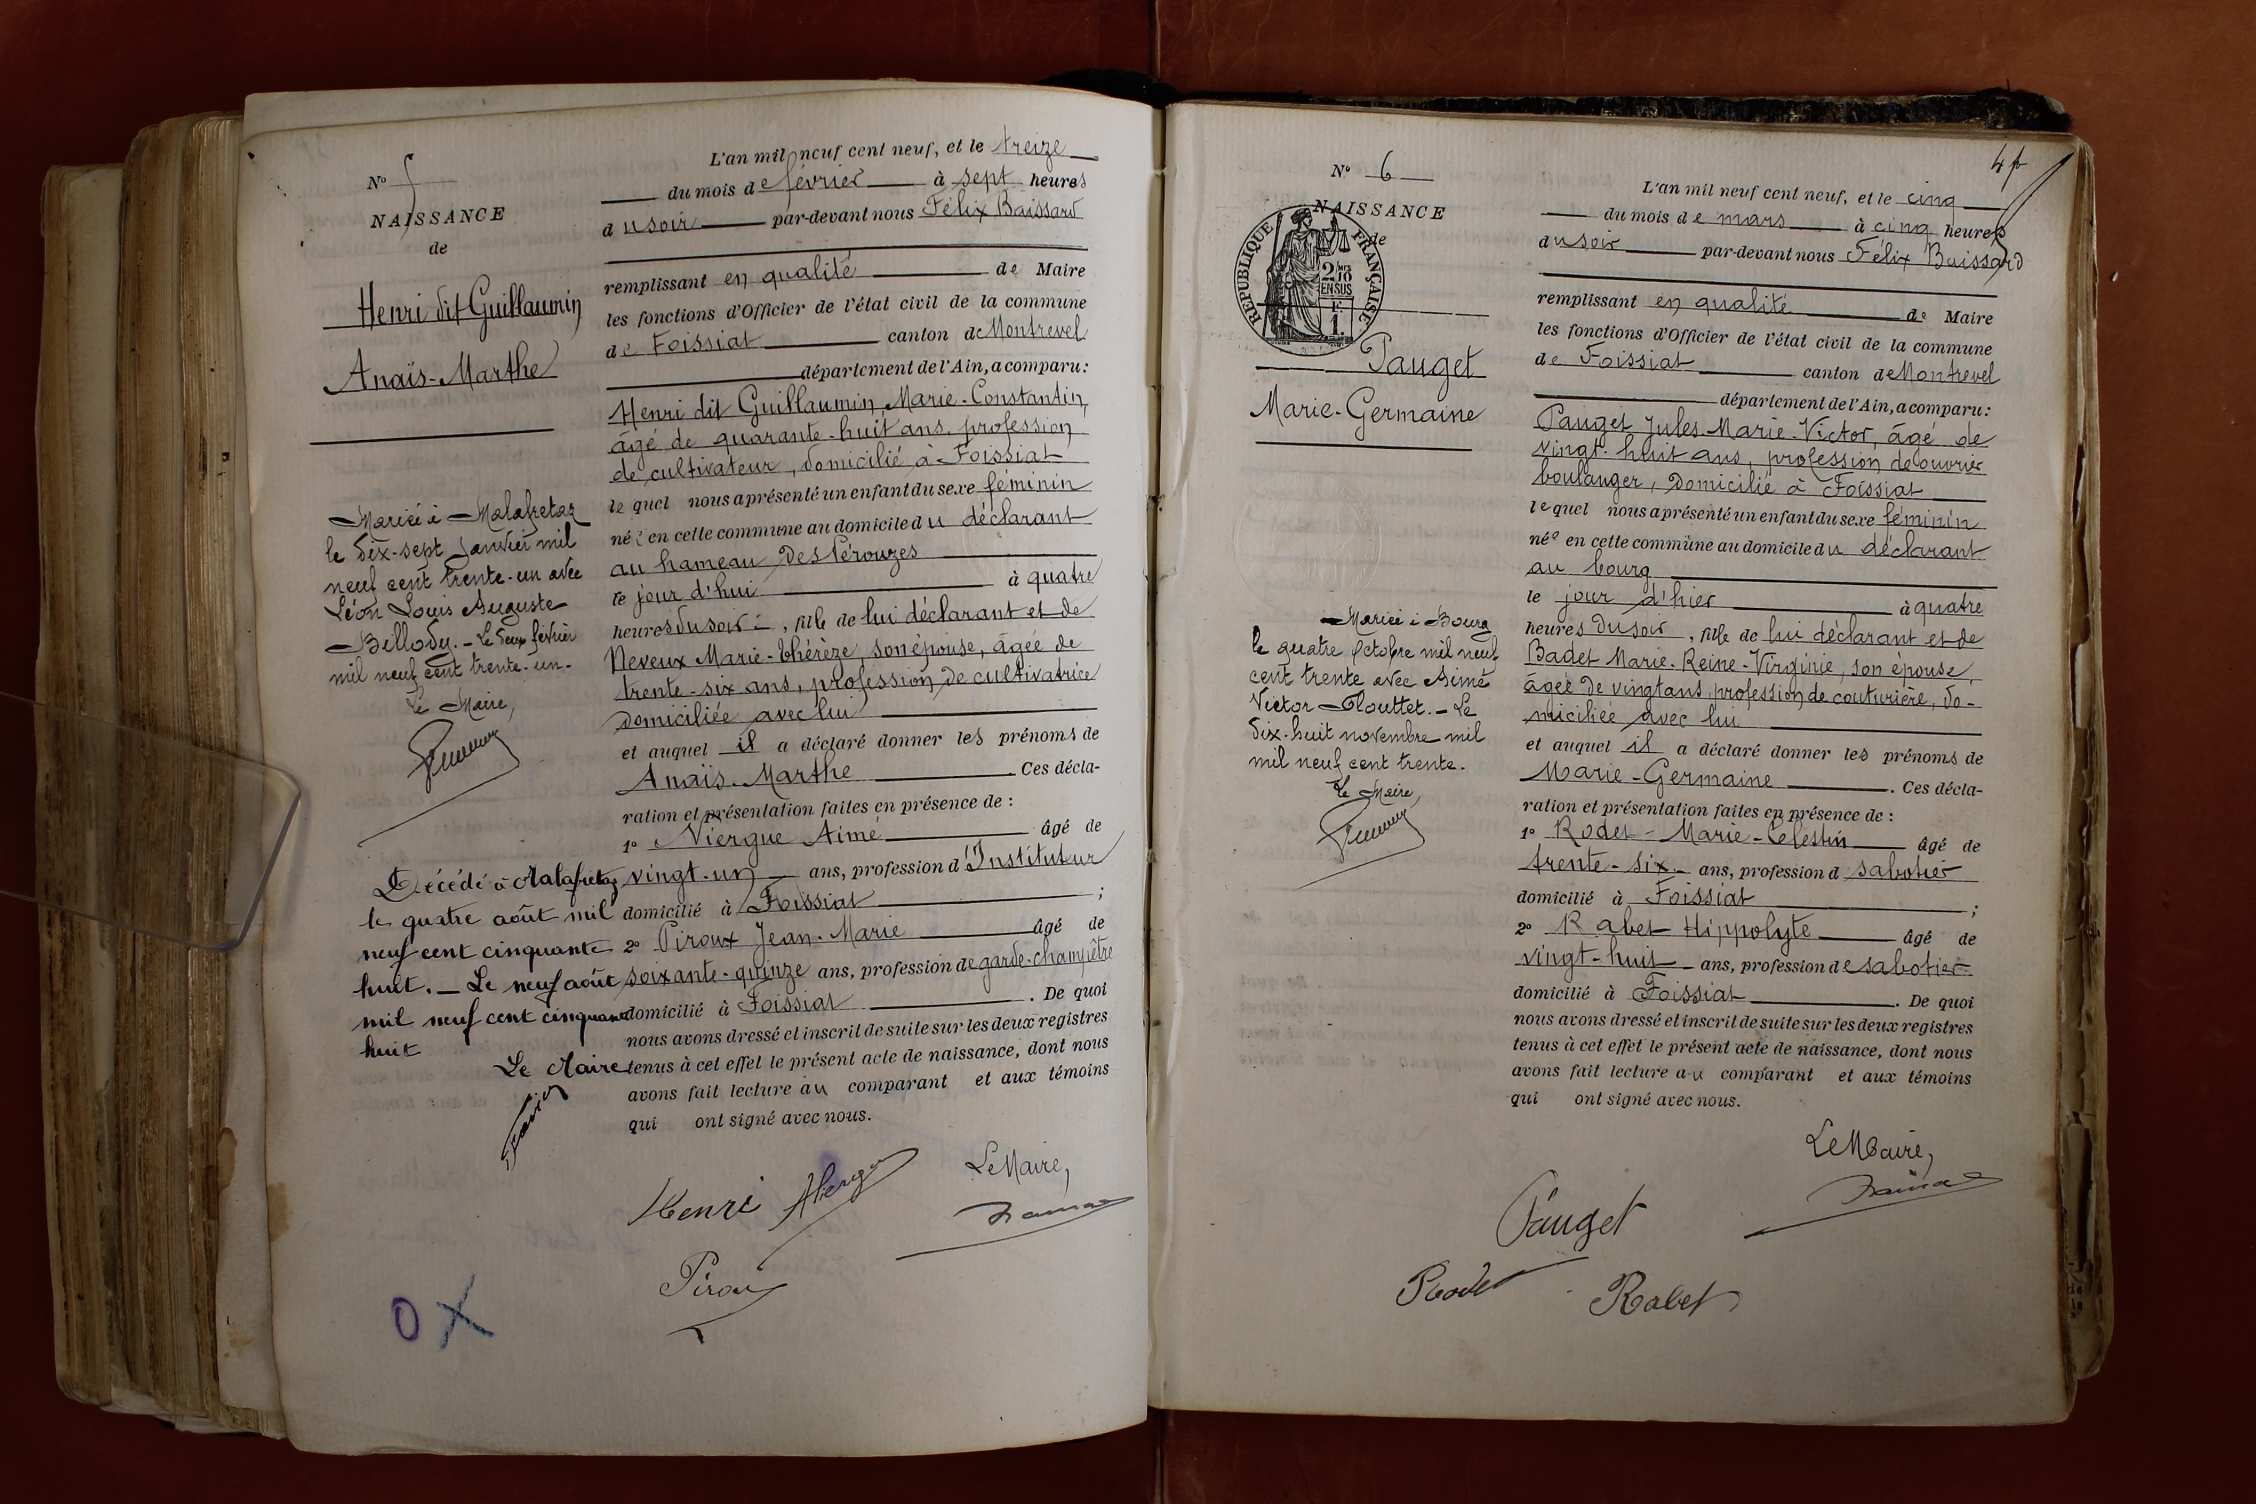 N° 5
NAISSANCE
de
Henri dit Guillaumin
Anaïs-Marthe
Mariée à Malafretaz
le dix-sept janvier mil
neuf cent trente-un avec
Léon Louis Auguste
Bellody. - Le deux février
mil neuf cent trente-un.
Le Maire,
Décédé à Malafretaz
le quatre août mil
neuf cent cinquante
huit. _ Le neuf août
mil neuf cent cinquante
huit
Le Maire
L'an mil neuf cent neuf, et le treize
du mois de février à sept heures
du soir par-devant nous Félix Baissard
remplissant en qualité de Maire
les fonctions d'Officier de l'état civil de la commune
de Foissiat canton de Montrevel
département de l'Ain, a comparu:
Henri dit Guillaumin, Marie-Constantin,
âgé de quarante-huit ans, profession
de cultivateur, domicilié à Foissiat
lequel nous a présenté un enfant du sexe féminin
née en cette commune au domicile du déclarant
au hameau des Pérouzes
le jour d'hui à quatre
heures du soir, fille de lui déclarant et de
Neveux Marie-Thérèze son épouse, âgée de
trente-six ans, profession de cultivatrice
domiciliée avec lui
et auquel il a déclaré donner les prénoms de
Anaïs-Marthe Ces décla-
ration et présentation faites en présence de :
1° Viergue Aimé âgé de
vingt-un ans, profession d'Instituteur
domicilié à Foissiat ;
2° Piroux Jean-Marie âgé de
soixante-quinze ans, profession de garde-champêtre
domicilié à Foissiat . De quoi
nous avons dressé et inscrit de suite sur les deux registres
tenus à cet effet le présent acte de naissance, dont nous
avons fait lecture au comparant et aux témoins
qui ont signé avec nous.
Le Maire,
Henri
Piroux
O X
4
N° 6
NAISSANCE
de
RÉPUBLIQUE FRANÇAISE
2/10
EN SUS
1F
Pauget
Marie-Germaine
Mariée à Bourg
le quatre octobre mil neuf
cent trente avec Aimé
Victor Plouttet. - Le
dix-huit novembre mil
mil neuf cent trente.
Le Maire,
L'an mil neuf cent neuf, et le cinq
du mois de mars à cinq heures
du soir par-devant nous Félix Baissard
remplissant en qualité de Maire
les fonctions d'Officier de l'état civil de la commune
de Foissiat canton de Montrevel
département de l'Ain, a comparu:
Pauget Jules-Marie-Victor, âgé de
vingt-huit ans, profession de ouvrier
boulanger, domicilié à Foissiat
lequel nous a présenté un enfant du sexe féminin
née en cette commune au domicile du déclarant
au bourg
le jour d'hier à quatre
heures du soir, fille de lui déclarant et de
Badet Marie-Reine-Virginie, son épouse,
âgée de vingt ans, profession de couturière, do-
miciliée avec lui
et auquel il a déclaré donner les prénoms de
Marie-Germaine . Ces décla-
ration et présentation faites en présence de :
1° Rodet-Marie-Célestin âgé de
trente-six ans, profession d sabotier
domicilié à Foissiat ;
2° Rabet Hippolyte âgé de
vingt-huit ans, profession de sabotier
domicilié à Foissiat . De quoi
nous avons dressé et inscrit de suite sur les deux registres
tenus à cet effet le présent acte de naissance, dont nous
avons fait lecture au comparant et aux témoins
qui ont signé avec nous.
Le Maire,
Pauget
Rodet
Rabet